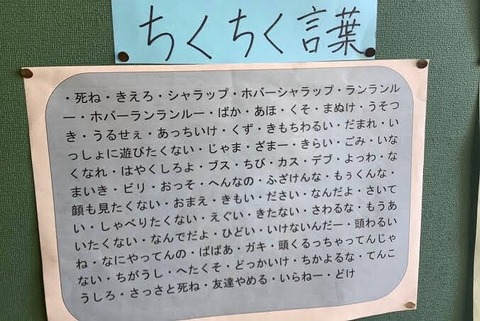 ちくちく言葉
・死ね・きえろ・シャラップ・ホバーシャラップ・ランランル
ー・ホバーランランルー・ばか・あほ・くそ・まぬけ・うそつ
き・うるせぇ・あっちいけ・くず・きもちわるい・だまれ・い
っしょに遊びたくない・じゃま・ざまー・きらい・ごみ・いな
くなれ・はやくしろよ・ブス・ちび・カス・デブ・よっわ・な
まいき・ビリ・おっそ・へんなの・ふざけんな・もぅくんな・
顔も見たくない・おまえ・きもい・ださい・なんだよ・さいて
い・しゃべりたくない・えぐい・きたない・さわるな・もうあ
いたくない・なんでだよ・ひどい・いけないんだー・頭わるい
ね・なにやってんの・ばばあ・ガキ・頭くるっちゃってんじゃ
ない・ちがうし・へたくそ・どっかいけ・ちかよるな・てんこ
うしろ・さっさと死ね・友達やめる・いらねー・どけ